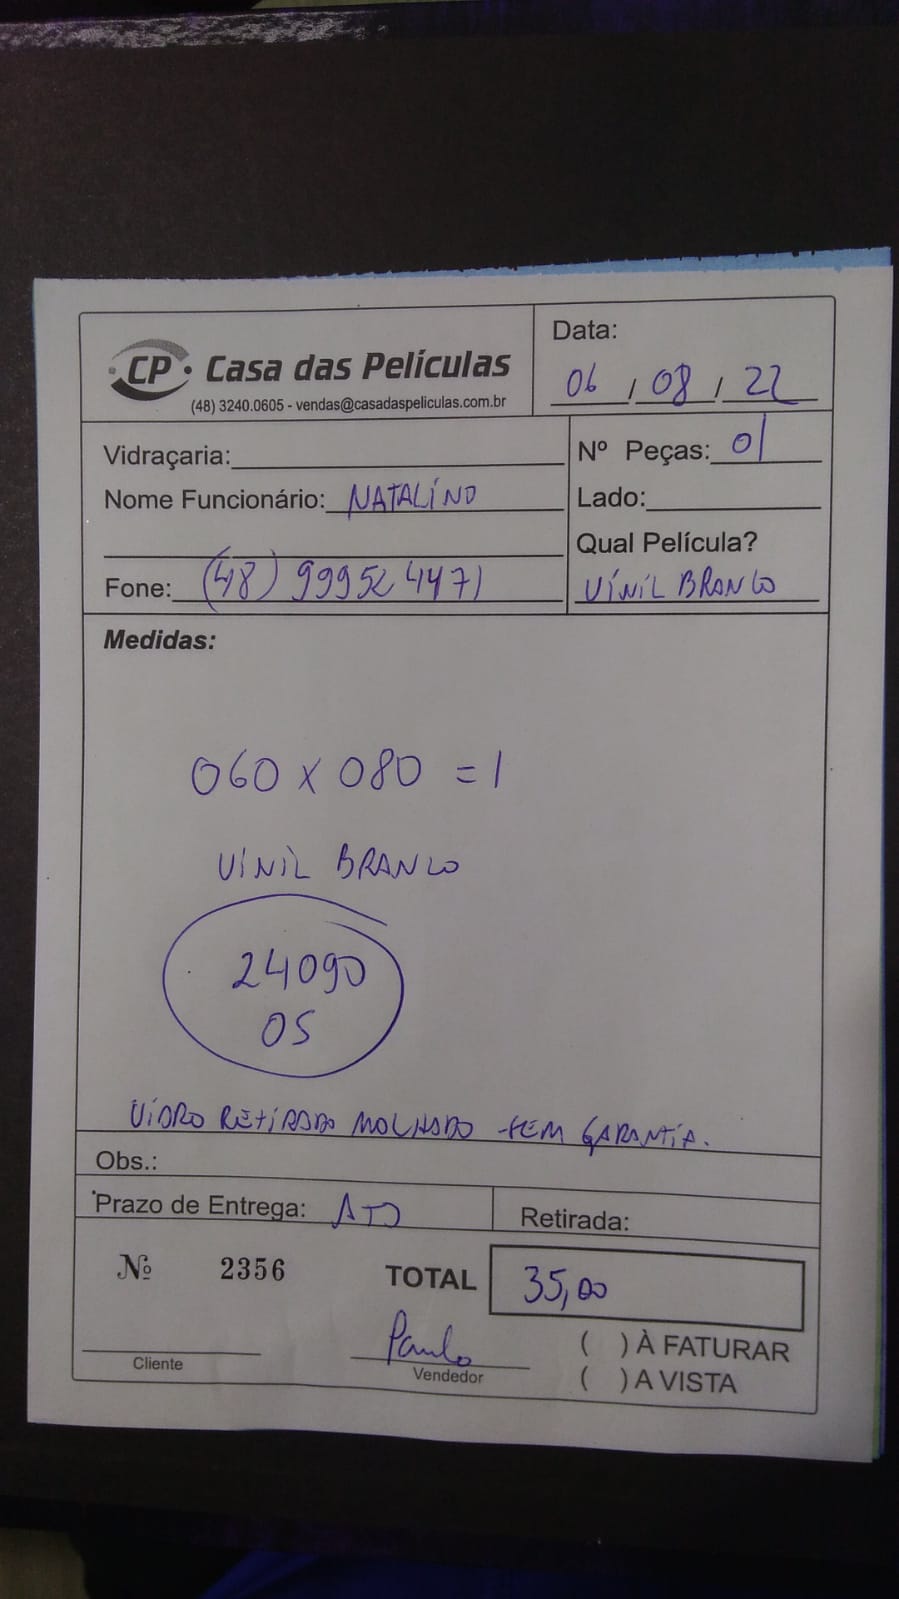 CP Casa das Películas
(48) 3240.0605 - vendas@casadaspeliculas.com.br
Data:
06 / 08 / 22
Vidraçaria:
Nº Peças: 01
Nome Funcionário: NATALINO
Lado:
Qual Película?
Fone: (48) 999524471
VINIL BRANCO
Medidas:
060 X 080 = 1
VINIL BRANCO
24090
OS
VIDRO RETIRADO MOLHADO TEM GARANTIA.
Obs.:
Prazo de Entrega: ATO
Retirada:
Nº 2356
TOTAL 35,00
Paulo
Cliente
Vendedor
( ) À FATURAR
( ) A VISTA